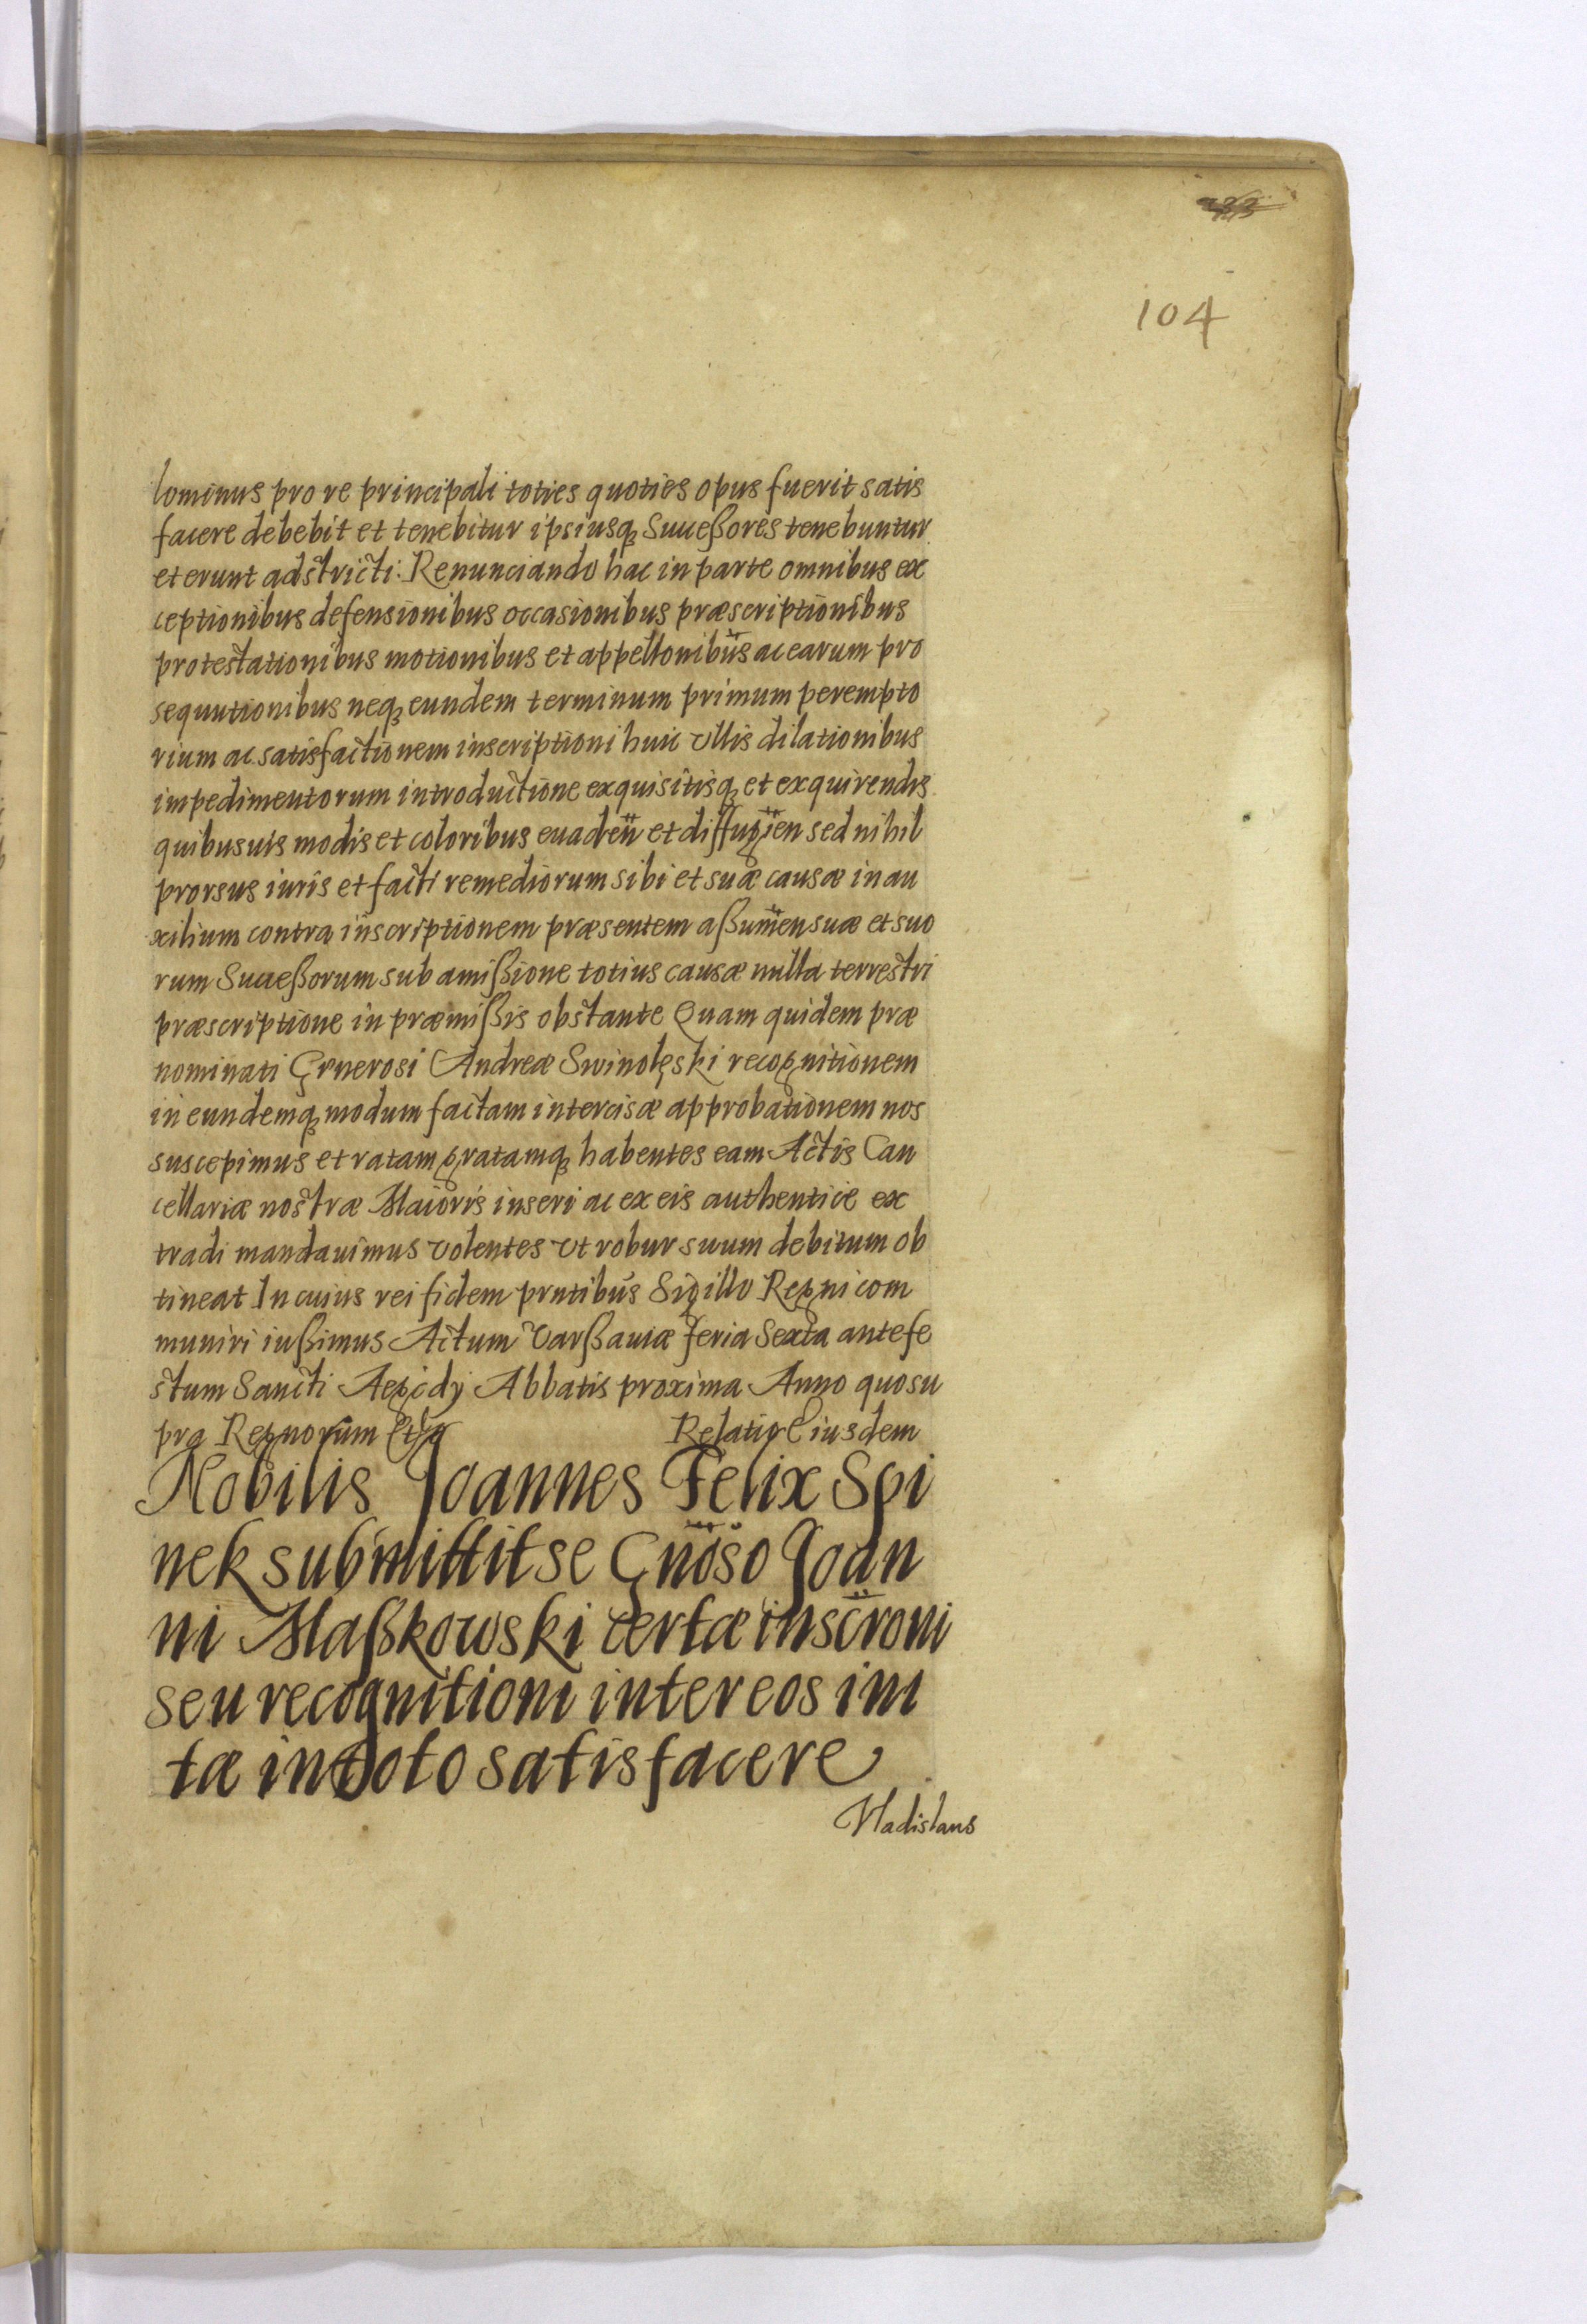 104
lominus pro re principali toties quoties opus fuerit satis
facere debebit et tenebitur ipsiusq Successores tenebuntur
et erunt adstricti. Renunciando hac in parte omnibus ex
ceptionibus defensionibus occasionibus præscriptionibus
protestationibus motionibus et appellonibus ac earum pro
sequutionibus neq eundem terminum primum perempto
rium ac satisfactionem inscriptioni huic vllis dilationibus
impedimentorum introductione exquisitisq et exquirendis
quibusuis modis et coloribus euaden et diffugien sed nihil
prorsus iuris et facti remediorum sibi et suæ causæ in au
xilium contra inscriptionem præsentem aßumen suæ et suo
rum Succeßorum sub amißione totius causæ nulla terrestri
præscriptione in præmißis obstante Quam quidem præ
nominati Generosi Andreæ Swinolęski recognitionem
in eundemq modum factam intercisæ approbationem nos
suscepimus et ratam gratamq habentes eam Actis Can
cellariæ nostræ Maioris inseri ac ex eis authentice ex
tradi mandauimus volentes vt robur suum debitum ob
tineat In cuius rei fidem prntibus Sigillo Regni com
muniri iußimus Actum Varßauiæ feria Sexta ante fe
stum Sancti Aegidy Abbatis proxima Anno quo su
pra Regnorum Relatio Eiusdem
Nobilis Joannes Felix Spi
nek submittit se Gnoso Joan
ni Maßkowski certæ inscroni
seu recognitioni inter eos ini
tæ in toto satisfacere
Vladislaus